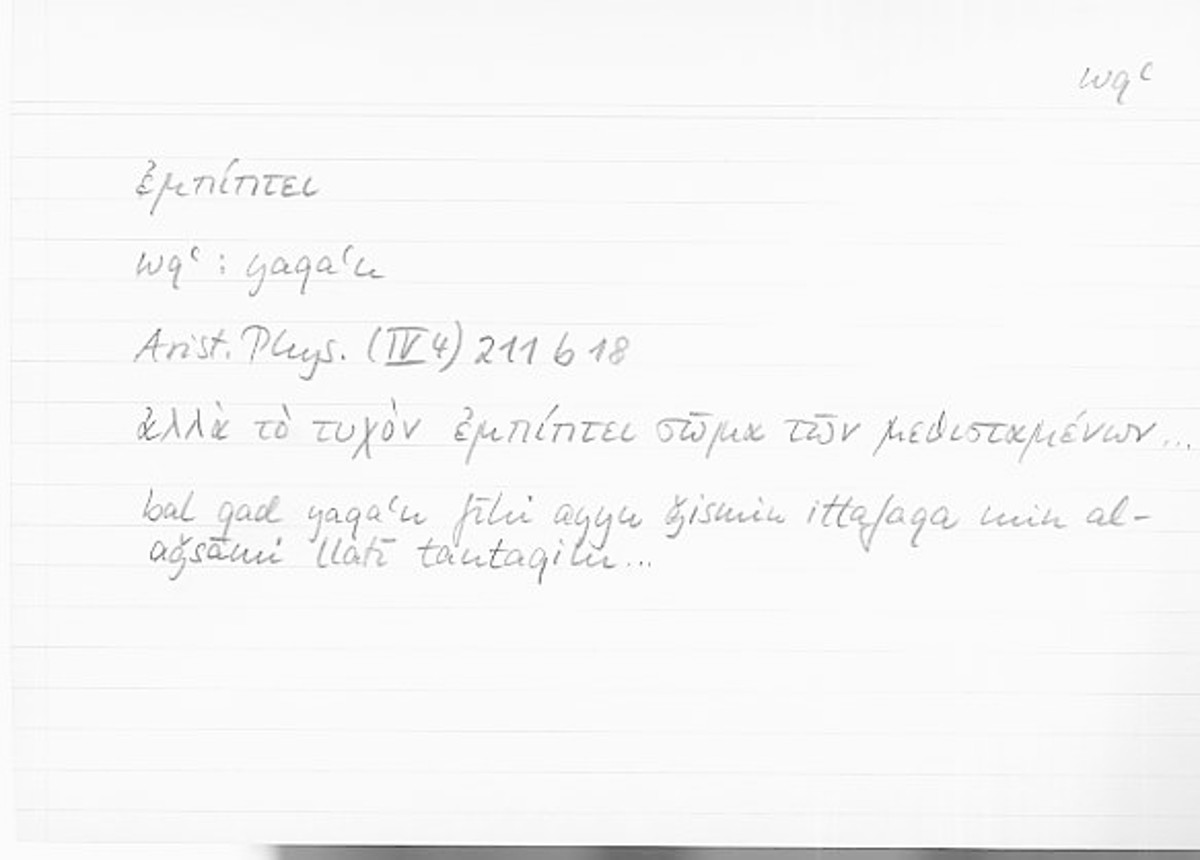 wqʿ
ἐμπίπτει
wqʿ : yaqaʿu
Arist. Phys. (IV 4) 211 b 18
ἀλλὰ τὸ τυχὸν ἐμπίπτει σῶμα τῶν μεθισταμένων...
bal qad yaqaʿu fīhi ayyu ǧismin ittafaqa min al-
aǧsāmi llatī tantaqilu...